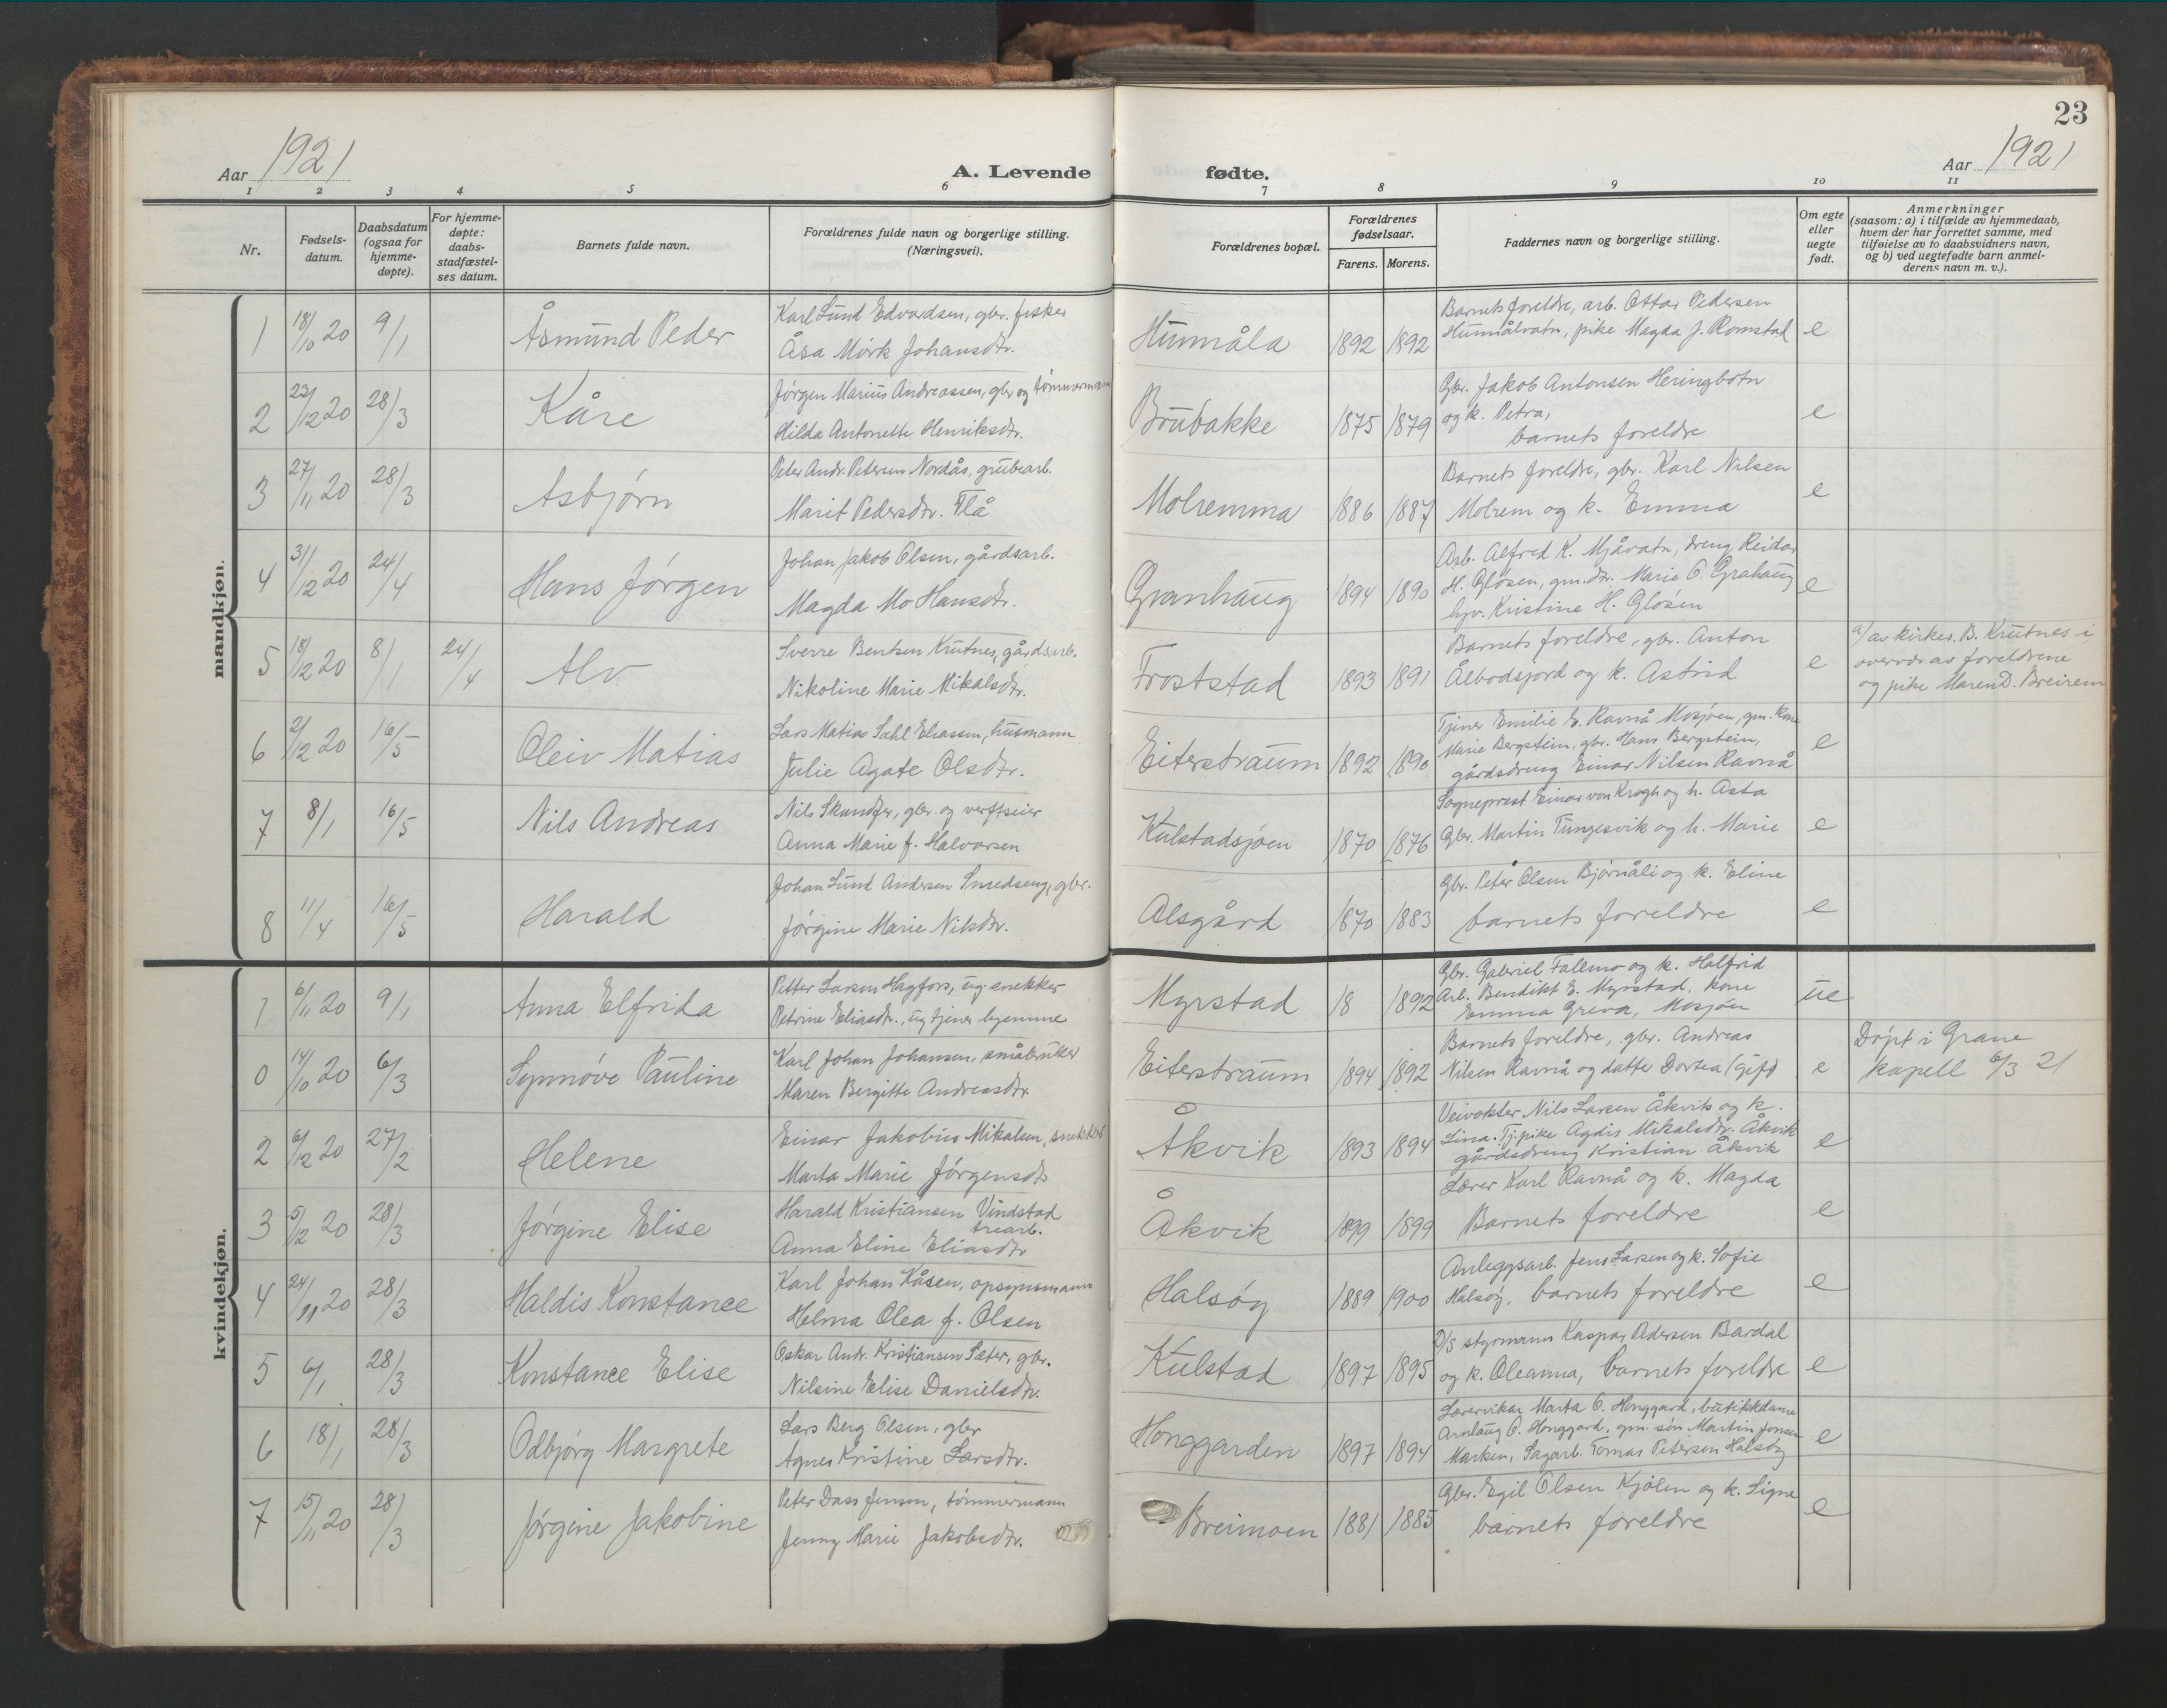 23
Aar 1921
A. Levende
fødte.
Aar 1921
1 2 3 4 5 6 7 8 9 10 11
Nr.
Fødsels-
datum.
Daabsdatum
(ogsaa for
hjemme-
døpte).
For hjemme-
døpte:
daabs-
stadfæstel-
ses datum.
Barnets fulde navn.
Forældrenes fulde navn og borgerlige stilling.
(Næringsvei).
Forældrenes bopæl.
Forældrenes
fødselsaar.
Farens. Morens.
Faddernes navn og borgerlige stilling.
Om egte
eller
uegte
født.
Anmerkninger
(saasom: a) i tilfælde av hjemmedaab,
hvem der har forrettet samme, med
tilføielse av to daabsvidners navn,
og b) ved uegtefødte barn anmel-
derens navn m. v.).
mandkjøn.
1 18/10 20 9/1 Åsmund Peder
Karl Lund Edvardsen, gbr. fisker
Åsa Mörk Johansdtr.
Hunnåla 1892 1892
Barnets foreldre, arb. Ottar Pedersen
Hunnålvatn, pike Magda J. Romstad
e
2 22/12 20 28/3 Kåre
Jørgen Marius Andreassen, gbr og tømmermann
Hilda Antonette Henriksdtr.
Brubakke 1875 1879
Gbr. Jakob Antonsen Heringbotn
og k. Petra,
barnets foreldre
e
3 27/11 20 28/3 Asbjørn
Peter Andr. Petersen Nordås, grubearb.
Marit Pedersdtr. Flå
Molremma 1886 1887
Barnets foreldre, gbr. Karl Nilsen
Molrem og k. Emma
e
4 31/12 20 24/4 Hans Jørgen
Johan Jakob Olsen, gårdsarb.
Magda Mo Hansdtr.
Granhaug 1894 1890
Arb. Alfred K. Mjåvatn, dreng Reidar
H. Glosen, gm. dtr. Marie O. Grahaug
hpr. Kristine H. Glosen
e
5 18/12 20 8/1 24/4 Alv
Sverre Bentsen Krutnes, gårdsarb.
Nikoline Marie Mikalsdtr.
Froststad 1893 1891
Barnets foreldre, gbr. Anton
Ålbodsjord og k. Astrid
e
a) av kirkes. B. Krutnes i
overvær av foreldrene
og pike Maren D. Breirem
6 2/12 20 16/5 Oleiv Matias
Lars Matias Sahl Eliassen, husmann
Julie Agate Olsdtr.
Eiterstraum 1892 1890
Tjener Emilie E. Ravnå Mosjøen, gm. kone
Marie Bergstein, gbr. Hans Bergstein,
gårdsdreng Einar Nilsen Ravnå
e
7 8/1 16/5 Nils Andreas
Nils Skandfer, gbr. og verftseier
Anna Marie f. Halvorsen
Kulstadsjøen 1870 1876
Sogneprest Einar von Krogh og h. Asta
Gbr. Martin Tungesvik og h. Marie
e
8 11/4 16/5 Harald
Johan Lund Andersen Smedseng, gbr.
Jørgine Marie Nilsdtr.
Olsgård 1870 1883
Gbr. Peter Olsen Bjørnåli og k. Eline
barnets foreldre
e
kvindekjøn.
1 6/11 20 9/1 Anna Elfrida
Petter Larsen Hagfors, ug. snekker
Petrine Eliasdtr., ug tjener hjemme
Myrstad 18 1892
Gbr. Gabriel Fallmo og k. Halfrid
Arb. Bendikt E. Myrstad, kone
Emma Greva, Mosjøen
ue
0 14/10 20 6/3 Synnøve Pauline
Karl Johan Johansen, småbruker
Maren Bergitte Andreasdtr.
Eiterstraum 1894 1892
Barnets foreldre, gbr. Andreas
Nilsen Ravnå og datter Dortea (gift)
e
Døpt i Grane
kapell 6/3 21
2 6/12 20 27/2 Helene
Einar Jakobus Mikalsen, snekker
Marta Marie Jørgensdtr
Åkvik 1893 1894
Veivokter Nils Larsen Åkvik og k.
Lina. Tj. pike Agdis Mikalsdtr. Åkvik
gårdsdreng Kristian Åkvik
e
3 5/12 20 28/3 Jørgine Elise
Harald Kristiansen Vindstad
trearb.
Anna Eline Eliasdtr
Åkvik 1899 1899
Lærer Karl Ravnå og k. Magda
Barnets foreldre
e
4 24/11 20 28/3 Haldis Konstance
Karl Johan Kåsen, opsynsmann
Helma Olea f. Olsen
Halsøy 1889 1900
Anleggsarb. Jens Larsen og k. Sofie
Halsøy, barnets foreldre
e
5 6/1 28/3 Konstance Elise
Oskar Andr. Kristiansen Sæter, gbr.
Nilsine Elise Danielsdtr.
Kulstad 1897 1895
D/S styrmann Kaspar Pedersen Bardal
og k. Oleanna, barnets foreldre
e
6 18/1 28/3 Odbjørg Margrete
Lars Berg Olsen, gbr
Agnes Kristine Larsdtr.
Honggarden 1897 1894
Lærervikar Marta O. Honggard, butikkdame
Arnlaug O. Honggard, gm. søn Martin Jonsen
Marken, Sagarb. Tomas Petersen Halsøy
e
7 15/11 20 28/3 Jørgine Jakobine
Peter Dass Jensen, tømmermann
Jenny Marie Jakobsdtr.
Breimoen 1881 1885
Gbr. Egil Olsen Kjölen og k. Signe
barnets foreldre
e